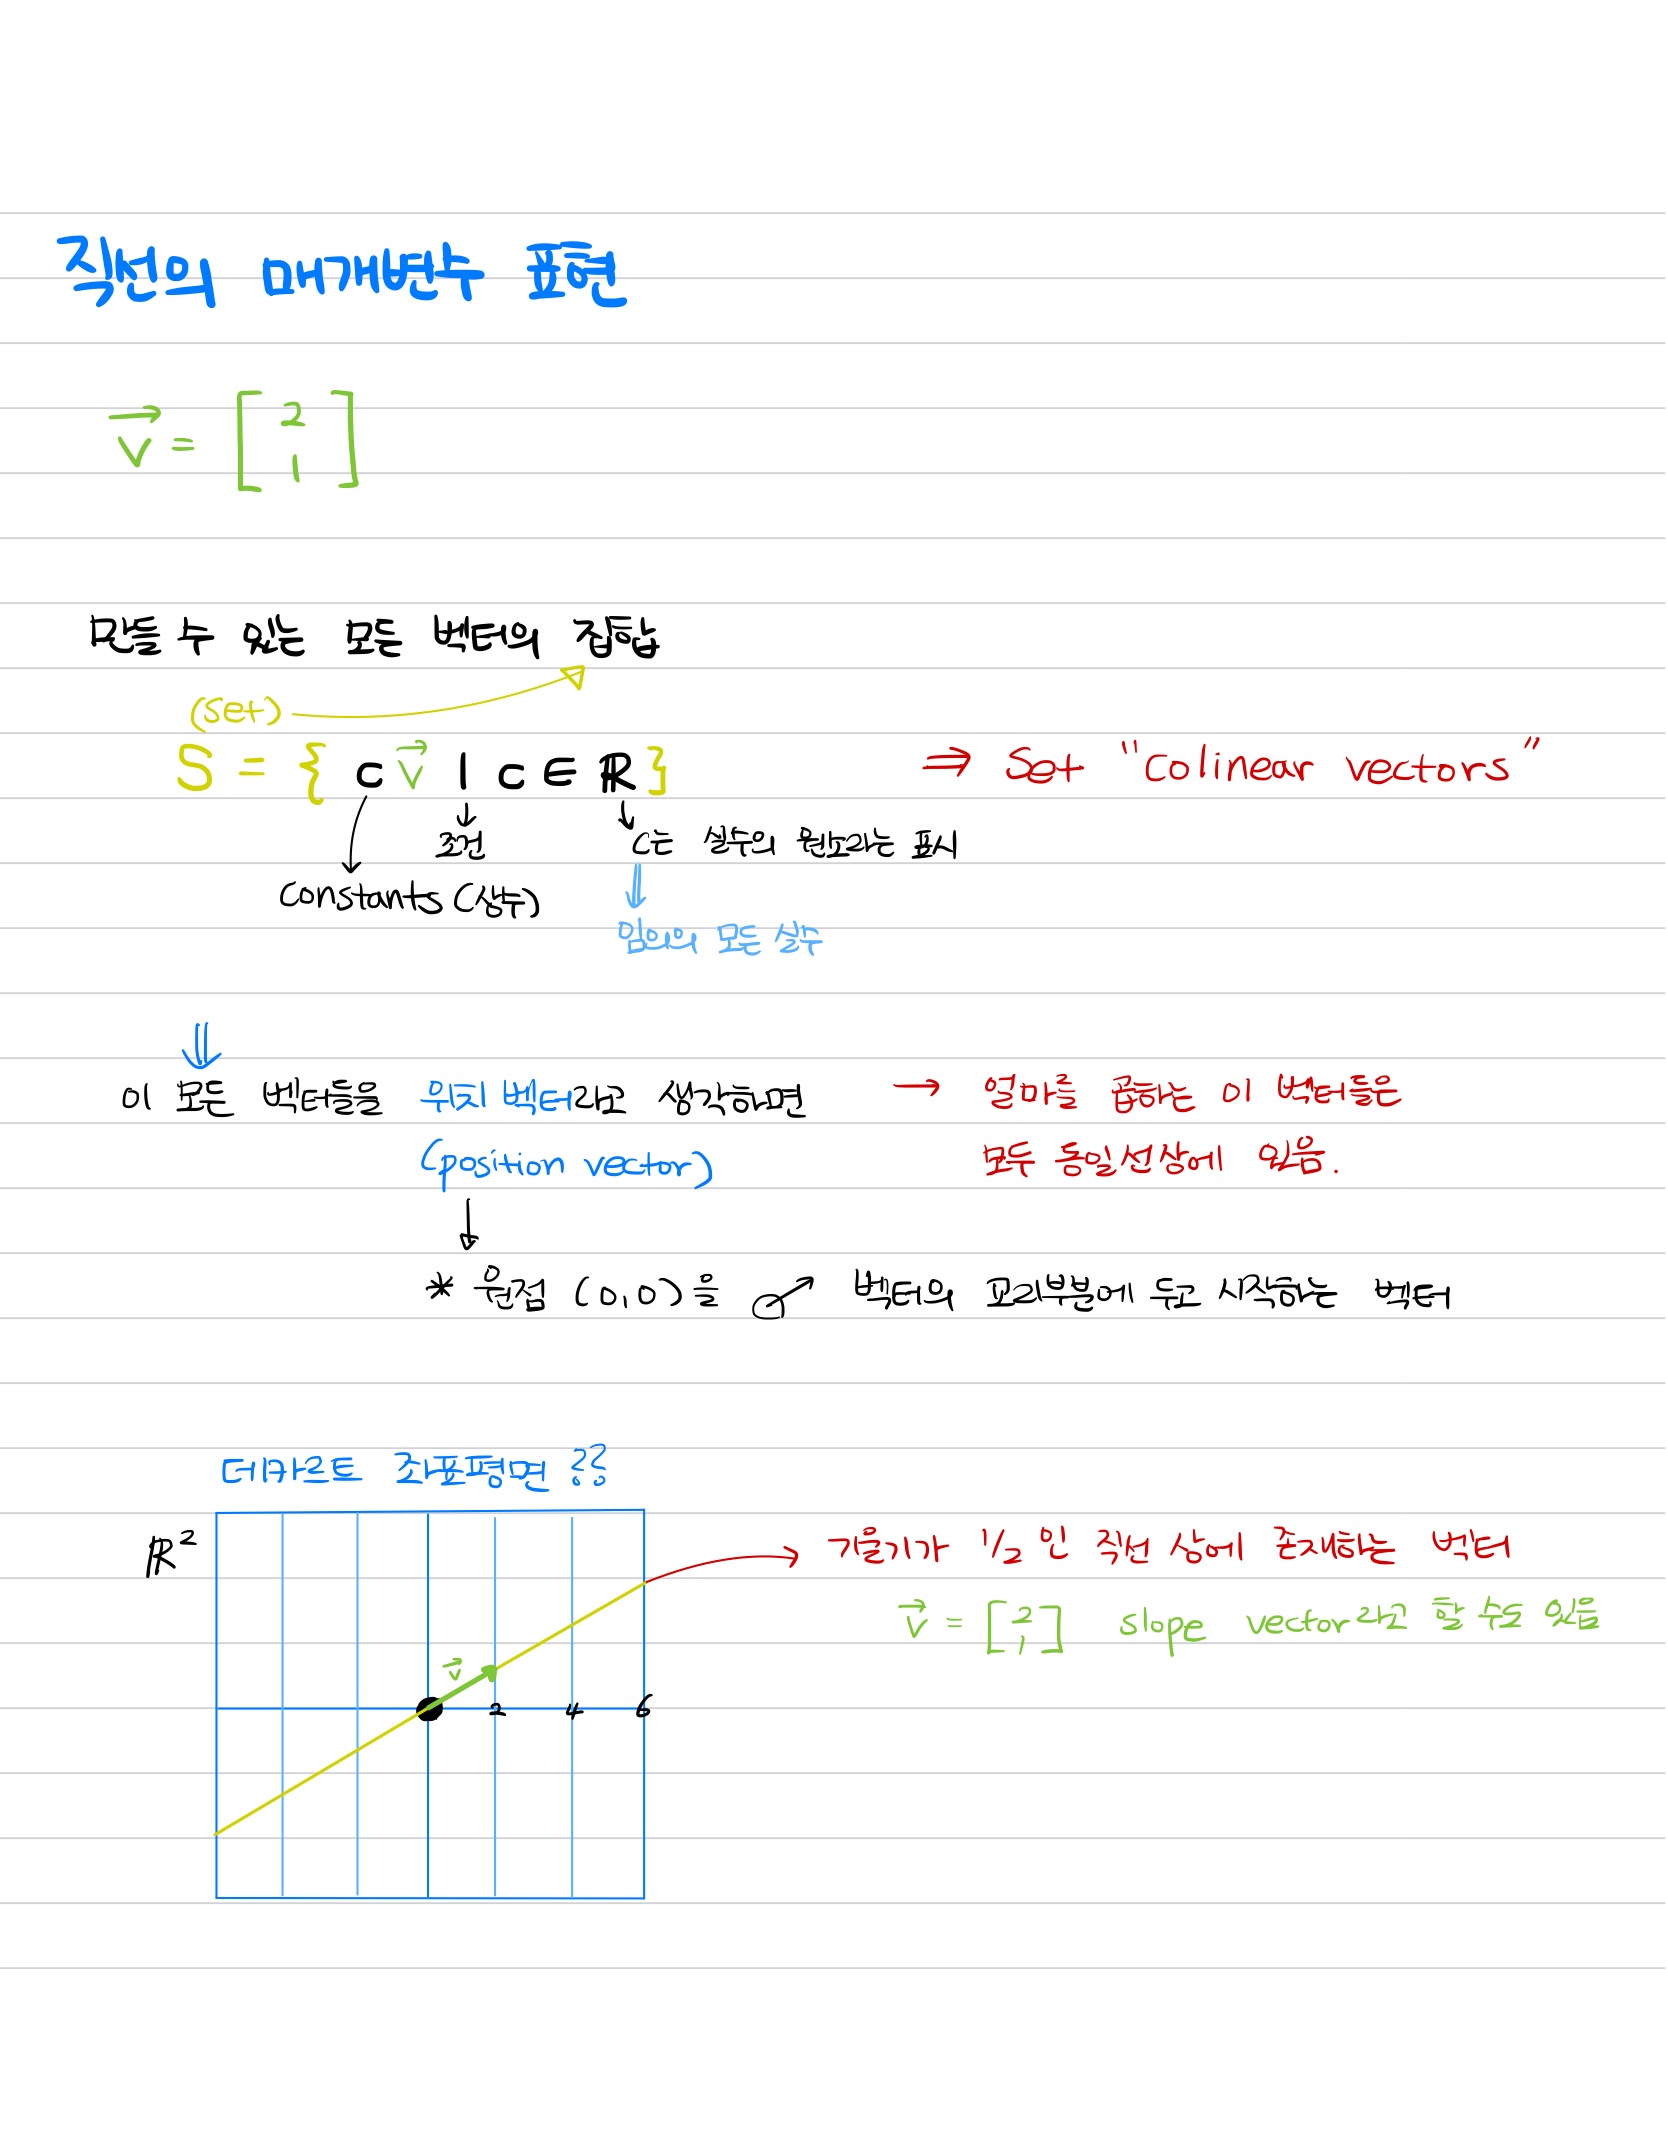 직선의 매개변수 표현
v = [ 2
1 ]
만들 수 있는 모든 벡터의 집합
(set)
S = { c v | c ∈ ℝ } ⇒ Set "colinear vectors"
조건 c는 실수의 원소라는 표시
constants (상수)
임의의 모든 실수
이 모든 벡터들을 위치 벡터라고 생각하면 → 얼마를 곱하는 이 벡터들은
(position vector) 모두 동일선상에 있음.
* 원점 (0,0)을 벡터의 꼬리부분에 두고 시작하는 벡터
데카르트 좌표평면 ??
ℝ² 기울기가 1/2 인 직선 상에 존재하는 벡터
v = [ 2 1 ] slope vector라고 할 수도 있음
v
2 4 6